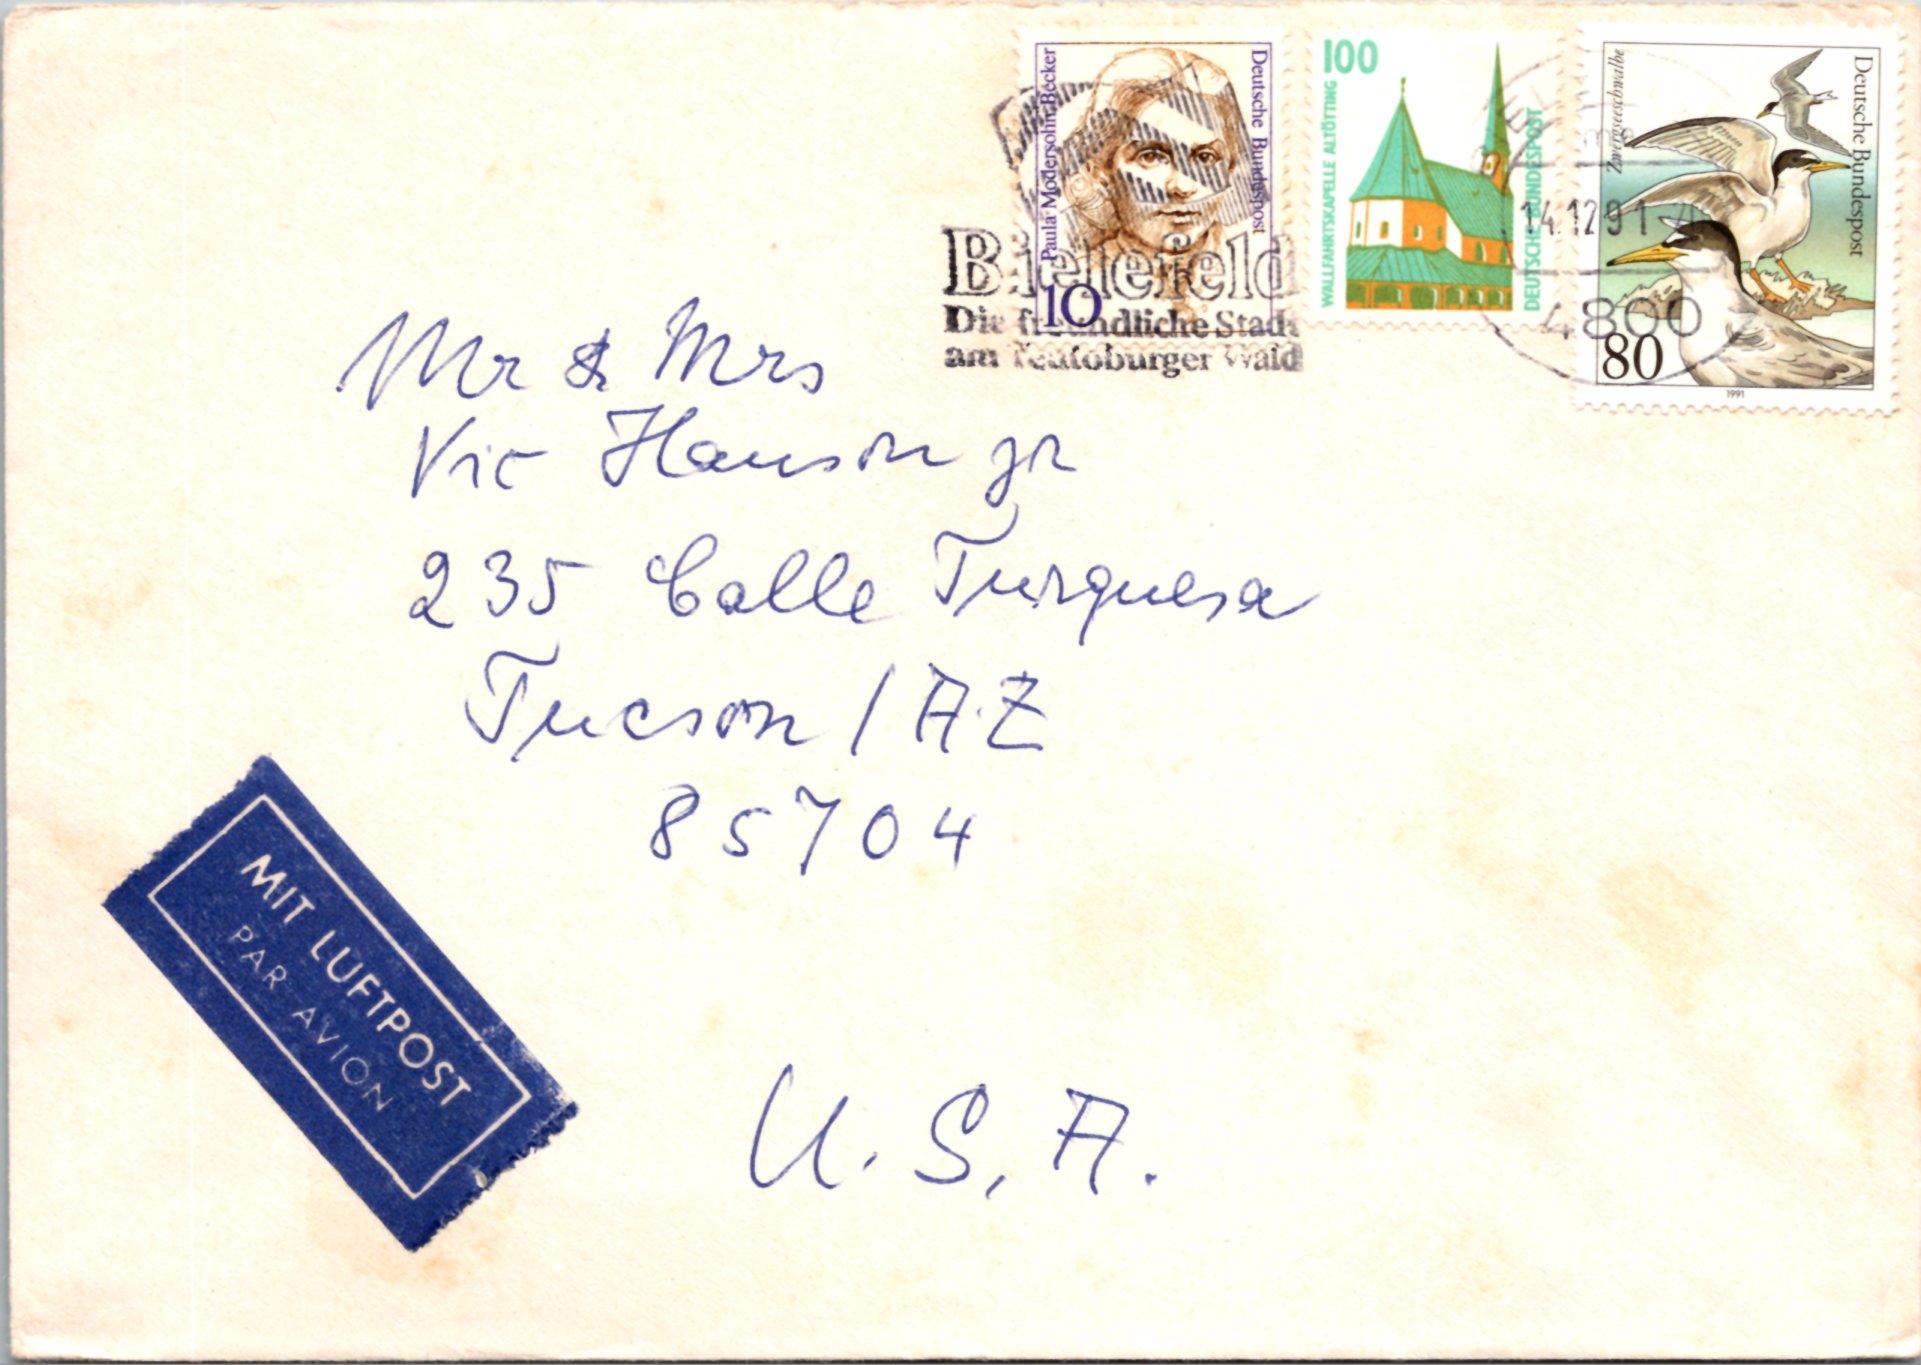 Paula Modersohn-Becker
Deutsche Bundespost
10
100
WALLFAHRTSKAPELLE ALTÖTTING
DEUTSCHE BUNDESPOST
Zwergseeschwalbe
Deutsche Bundespost
80
1991
Bielefeld
Die freundliche Stadt
am Teutoburger Wald
14.12.91
4800
Mr & Mrs
Vic Hanson jr
235 Calle Turquesa
Tucson / AZ
85704
U.S.A.
MIT LUFTPOST
PAR AVION